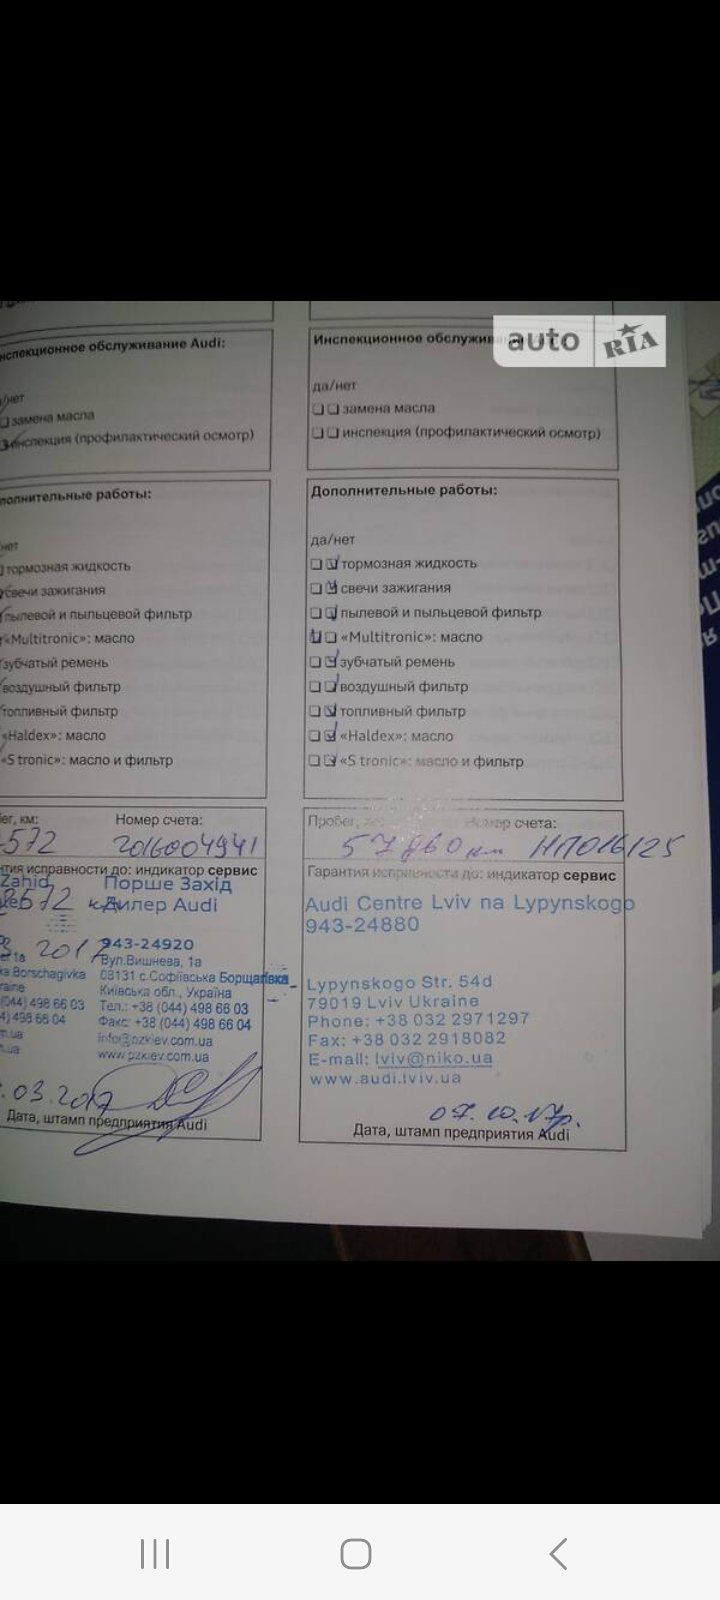 auto RIA
нспекционное обслуживание Audi:
замена масла
инспекция (профилактический осмотр)
полнительные работы:
тормозная жидкость
свечи зажигания
пылевой и пыльцевой фильтр
«Multitronic»: масло
зубчатый ремень
воздушный фильтр
топливный фильтр
«Haldex»: масло
«S tronic»: масло и фильтр
ег, км:
Номер счета:
572
2016004941
нтия исправности до: индикатор сервис
Zahid
Порше Захід
Дилер Audi
943-24920
2017
Вул.Вишнева, 1а
ka Borschagivka
08131 с.Софіївська Борщагівка
raine
Київська обл., Україна
(044) 498 66 03
Тел.: +38 (044) 498 66 03
4) 498 66 04
Факс: +38 (044) 498 66 04
info@pzkiev.com.ua
www.pzkiev.com.ua
.03.2017
Дата, штамп предприятия Audi
Инспекционное обслужив
да/нет
замена масла
инспекция (профилактический осмотр)
Дополнительные работы:
да/нет
тормозная жидкость
свечи зажигания
пылевой и пыльцевой фильтр
«Multitronic»: масло
зубчатый ремень
воздушный фильтр
топливный фильтр
«Haldex»: масло
«S tronic»: масло и фильтр
Пробег,
Номер счета:
57860 км НП016125
Гарантия исправности до: индикатор сервис
Audi Centre Lviv na Lypynskogo
943-24880
Lypynskogo Str. 54d
79019 Lviv Ukraine
Phone: +38 032 2971297
Fax: +38 032 2918082
E-mail: lviv@niko.ua
www.audi.lviv.ua
07.10.17р.
Дата, штамп предприятия Audi